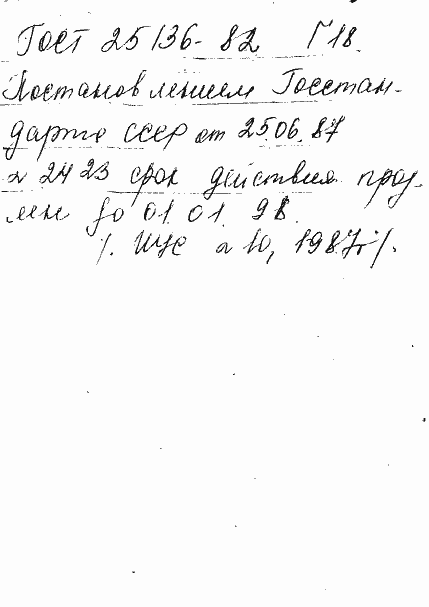 ГОСТ 25136-82 Г18.
Постановлением Госстан-
дарта СССР от 25.06.87
№ 2423 срок действия прод-
лен до 01.01.98.
/. ИУС № 10, 1987г/.